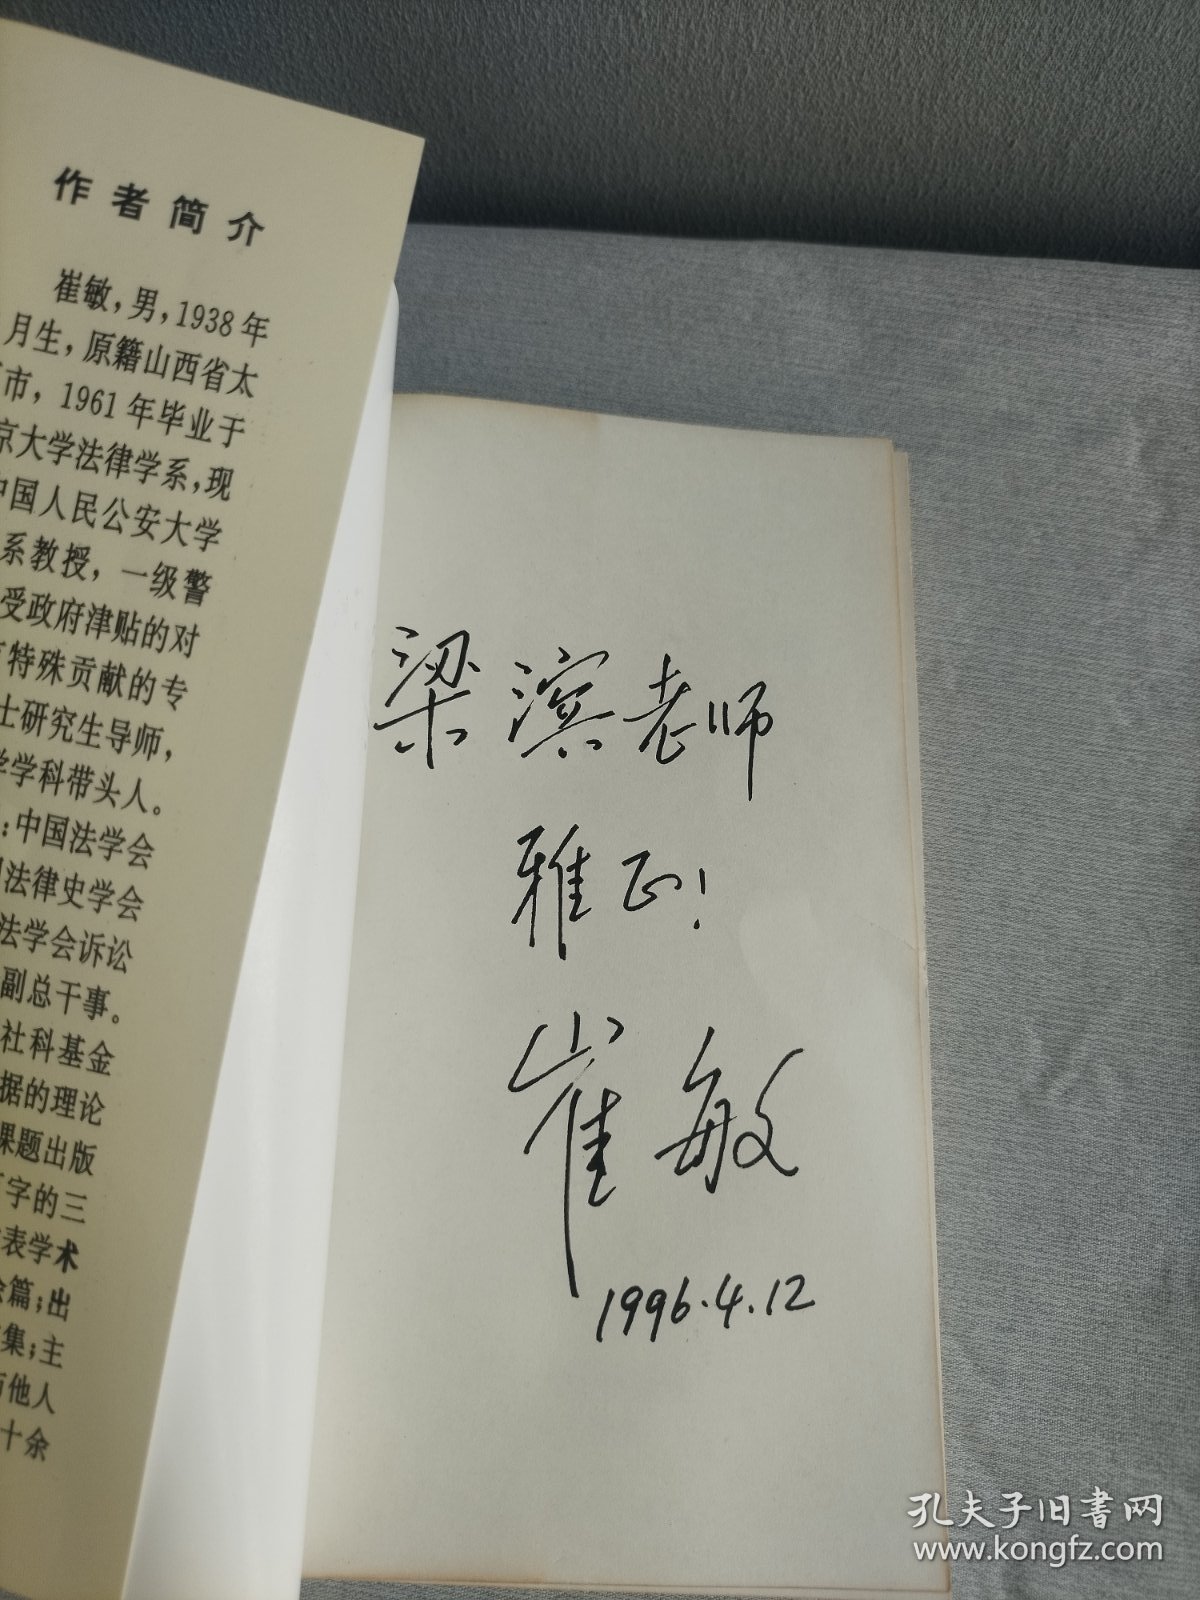 作者简介
崔敏，男，1938年
月生，原籍山西省太
市，1961年毕业于
京大学法律学系，现
中国人民公安大学
系教授，一级警
受政府津贴的对
特殊贡献的专
士研究生导师，
学学科带头人。
：中国法学会
法律史学会
法学会诉讼
副总干事。
社科基金
据的理论
课题出版
字的三
表学术
篇；出
集；主
他人
十余
梁滨老师
雅正！
崔敏
1996.4.12
孔夫子旧书网
www.kongfz.com